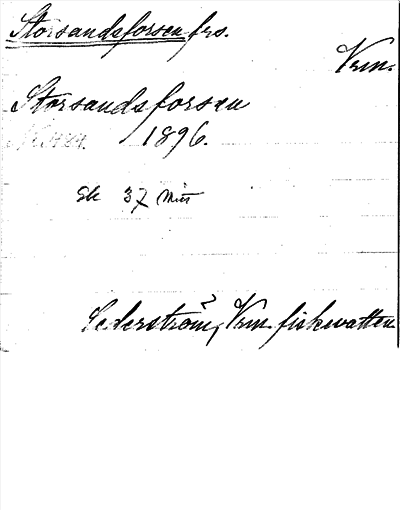 Storsandsforsen frs.
Vrm.
Storsandsforsen
1896.
Ek 37 
Cederström, Vrm. fiskvatten